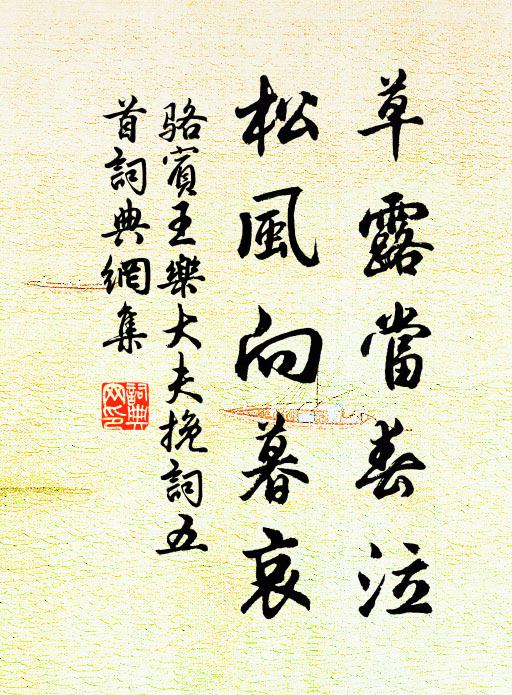 草露當春泣
松風向暮哀
駱賓王樂大夫挽詞五
首詞典網集
詞典
网印